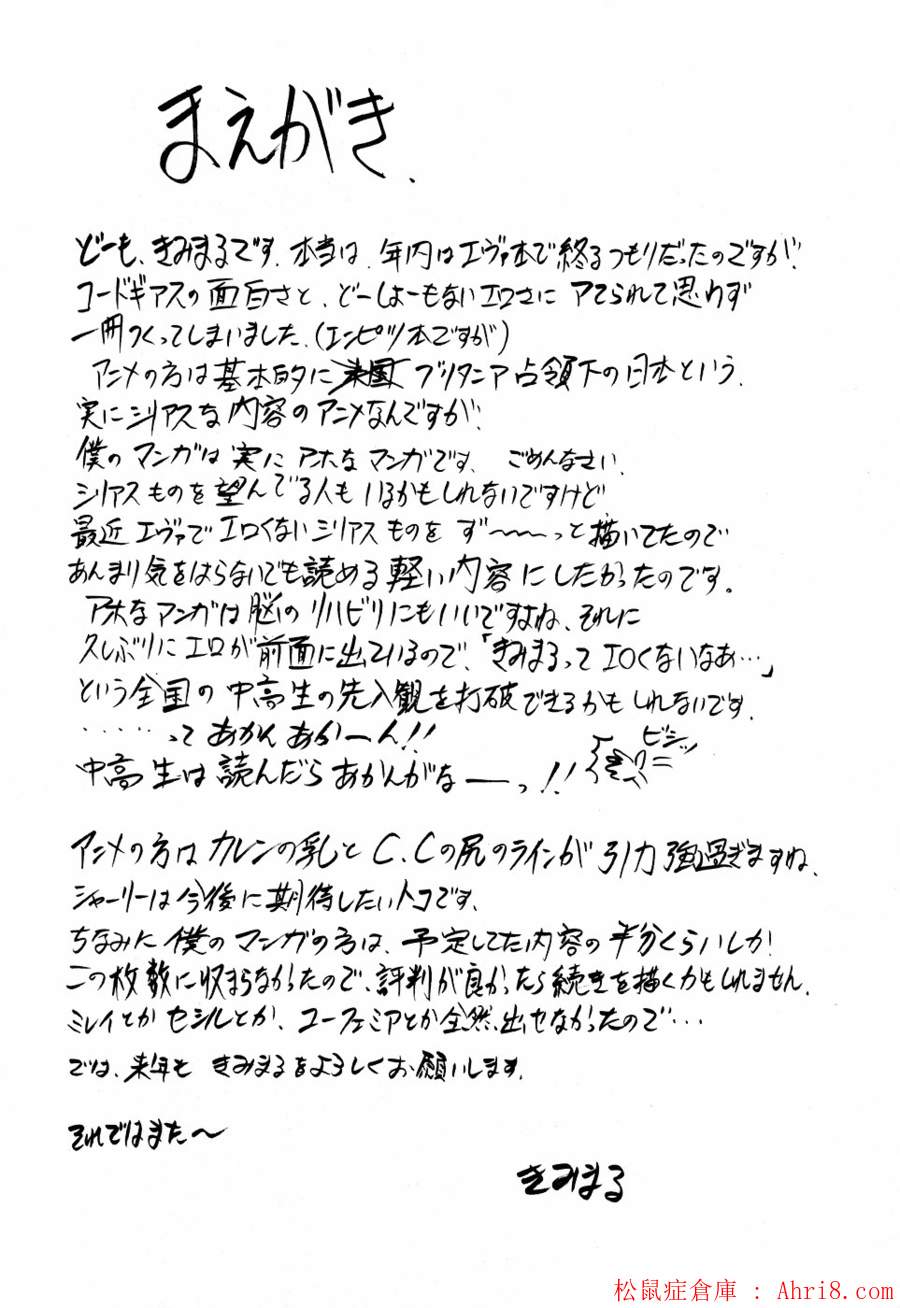 まえがき.
どーも、きみまるです。本当は、年内はエヴァ本で終るつもりだったのですが、
コードギアスの面白さと、どーしょーもないエロさにアてられて思わず
一冊つくってしまいました。(エンピツ本ですが)
アニメの方は基本的にブリタニア占領下の日本という、
実にシリアスな内容のアニメなんですが、
僕のマンガは実にアホなマンガです。ごめんなさい。
シリアスものを望んでる人もいるかもしれないですけど
最近エヴァでエロくないシリアスものをず〜〜〜っと描いてたので
あんまり気をはらないでも読める軽い内容にしたかったのです。
アホなマンガは脳のリハビリにもいいですよね、それに
久しぶりにエロが前面に出ているので、「きみまるってエロくないなあ…」
という全国の中高生の先入観を打破できるかもしれないです。
......ってあかんあかーん!!
ビシッ
中高生は読んだらあかんがなーっ!!
アニメの方はカレンの乳とC.Cの尻のラインが引力強過ぎますね、
シャーリーは今後に期待したいトコです、
ちなみに僕のマンガの方は、予定してた内容の半分くらいしか
この枚数に収まらなかったので、評判が良かったら続きを描くかもしれません。
ミレイとかセシルとか、ユーフェミアとか全然出せなかったので…
では、来年もきみまるをよろしくお願いします。
それではまた〜
きみまる
松鼠症倉庫 : Ahri8.com